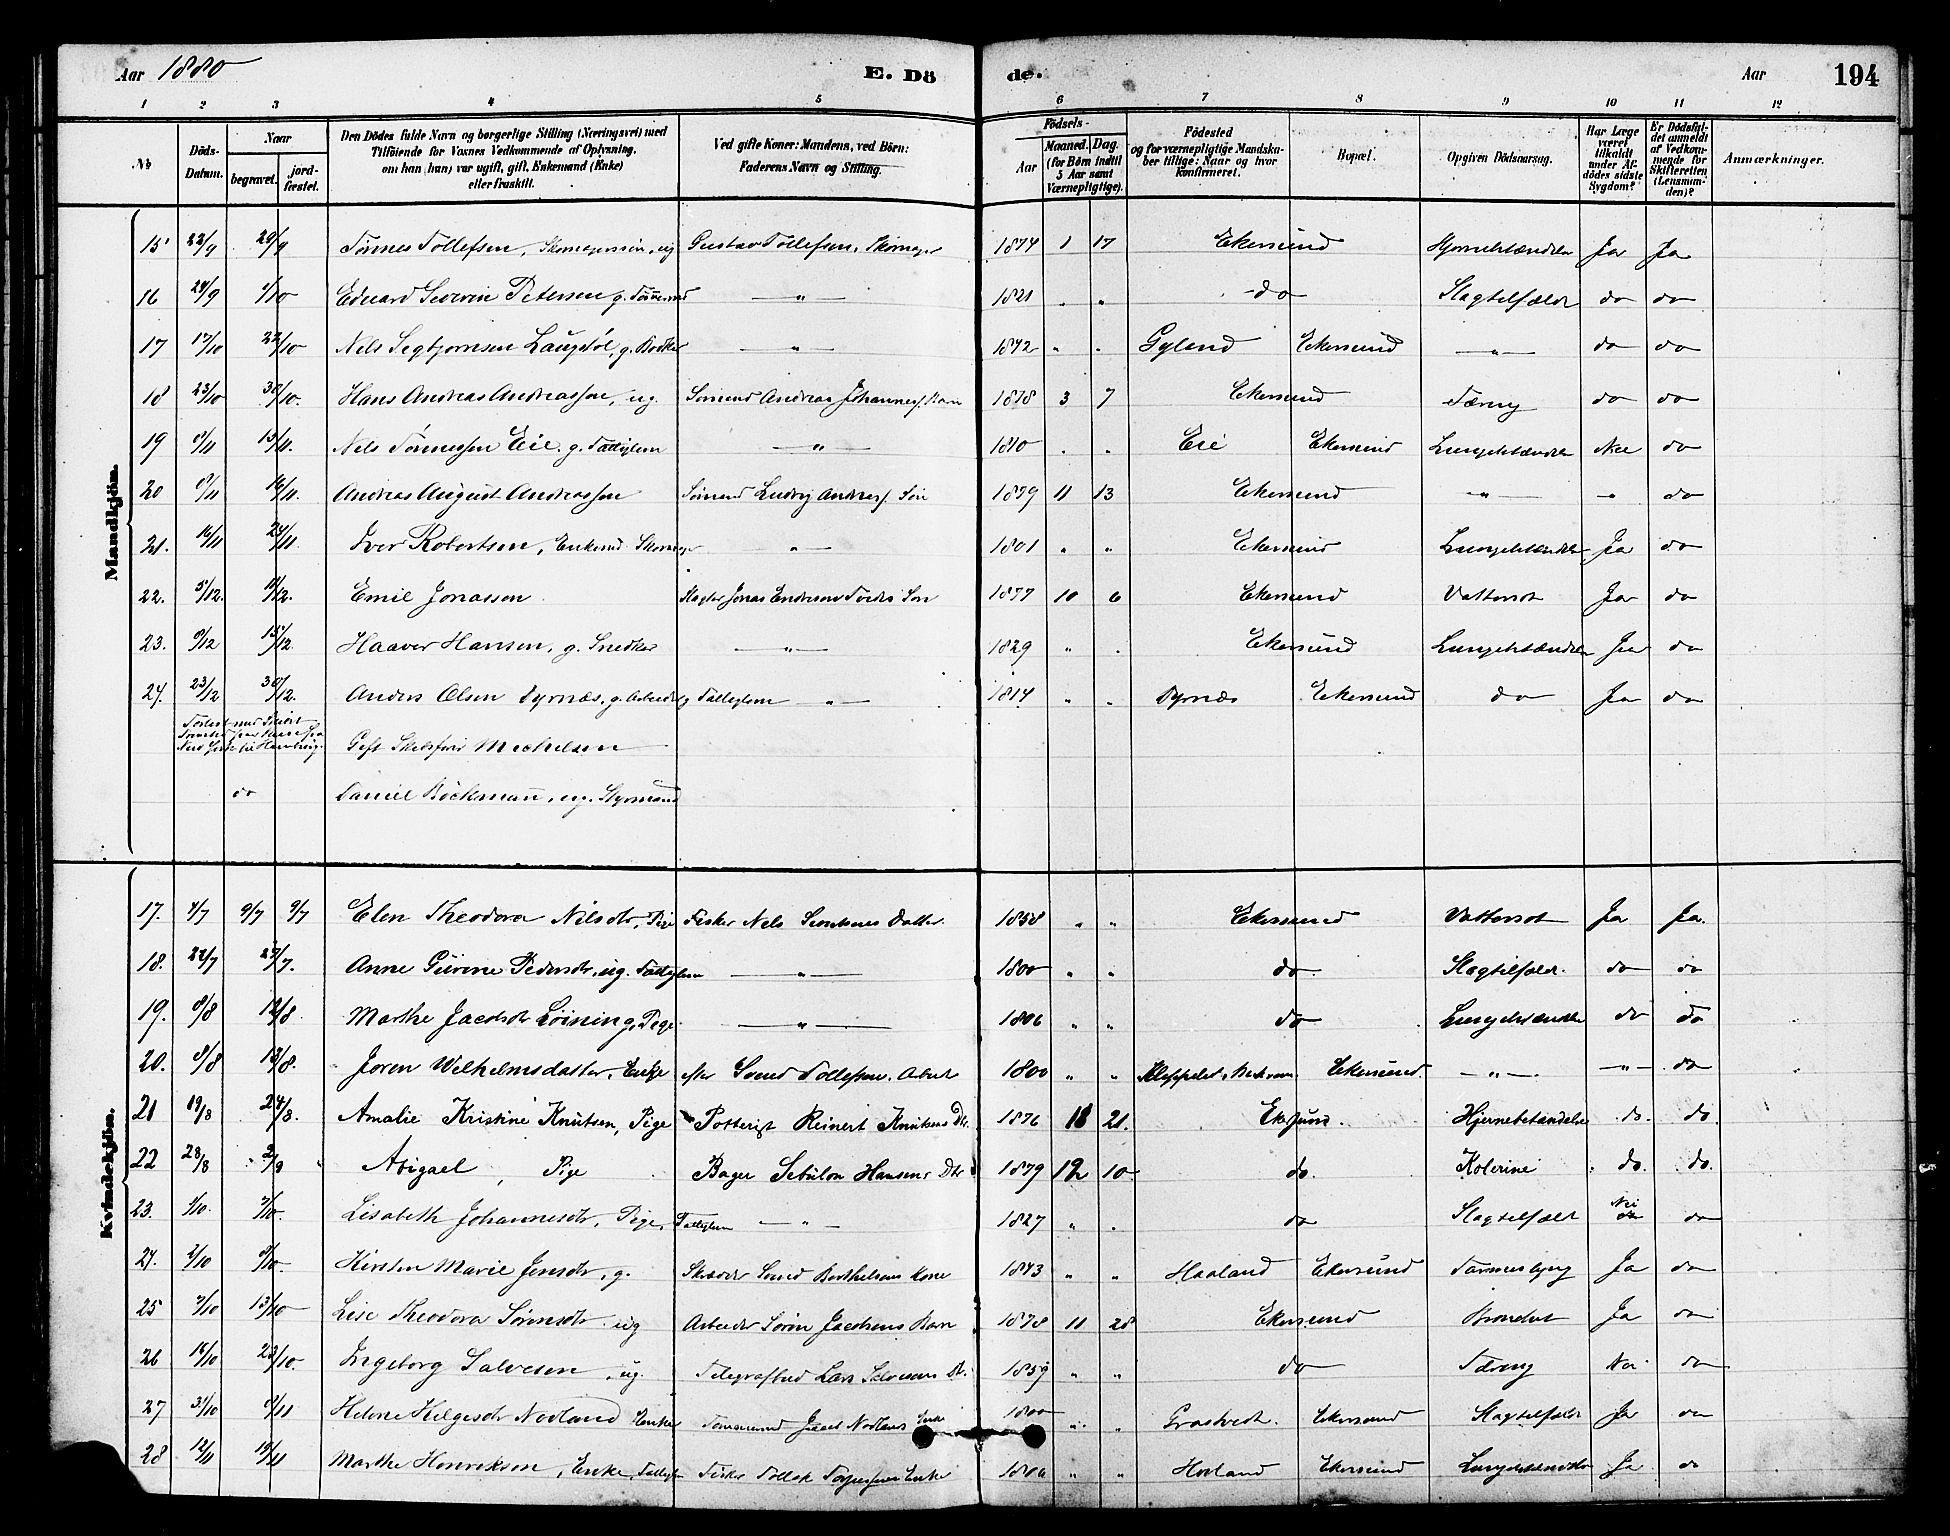 Aar 1880 E. Dö de. Aar 194
1 2 3 4 5 6 7 8 9 10 11 12
No Döds-Datum. Naar begravet. jord-fæstet. Den Dödes fulde Navn og borgerlige Stilling (Næringsvei) med Tilföiende for Voxnes Vedkommende af Oplysning, om han (hun) var ugift, gift, Enkemand (Enke) eller fraskilt. Ved gifte Koner: Mandens, ved Börn: Faderens Navn og Stilling. Födsels- Aar Maaned. Dag. (for Börn indtil 5 Aar samt Værnepligtige). Födested og for værnepligtige Mandskaber tillige: Naar og hvor konfirmeret. Bopæl. Opgiven Dödsaarsag. Har Læge været tilkaldt under Afdödes sidste Sygdom? Er Dödsfaldet anmeldt af Vedkommende for Skifteretten (Lensmanden)? Anmærkninger.
Mandkjön.
15 22/9 29/9 Tönnes Tollefsen, Skomagersön, ug Gustav Tollefsen, Skomager 1874 1 17 Ekersund Hjernebetændelse Ja Ja
16 24/9 1/10 Eduard Severin Petersen g. — " — 1821 " " do Slagtilfælde do do
17 17/10 22/10 Nels Segbjørnsen Laupstöl, g. Bødker — " — 1842 " " Gyland Ekersund — " — do do
18 23/10 30/10. Hans Andreas Andreassen, ug. Sömand Andreas Johannes. Barn 1878 3 7 Ekersund Tæring do do
19 8/11 15/11. Nels Tönnessen Eie. g. Fattiglem — " — 1810 " " Eie Ekersund Lungebetændelse Nei do
20 9/11 16/11. Andreas August Andreassen Sömand Ludvig Andreas. Sön 1879 11 13 Ekersund — " — " do
21. 16/11 24/11. Iver Robertsen, Enkemd Skomager — " — 1801 " " Ekersund Lungebetændelse Ja do
22. 5/12. 11/12. Emil Jonassen Slagter Jonas Endresens Sön 1877 10 6 Ekersund Vattersot Ja do
23. 9/12 15/12. Haaver Hansen, g. Snedker — " — 1829 " " Ekersund Lungebetændelse Ja do
24. 23/12 30/12. Anders Olsen Dyrnæs, g. Arbeider, Fattiglem — " — 1814 " " Dyrnæs Ekersund do Ja do
Gift Skibsförer Mechelsen
do Daniel Böckmann, ug. Styrmand
Kvindekjön.
17. 4/7 9/7 9/7 Elen Theodora Nilsdtr, Pige Fisker Nels Datter. 1858 " " Ekersund Vattersot Ja Ja.
18. 22/7 27/7. Anne Gurine Pedersdtr, ug. Fattiglem — " — 1800 " " do Slagtilfælde. do do
19. 8/8 12/8 Marthe Jacobsdtr Löining, Pige — " — 1806 " " do Lungebetændelse do do
20. 8/8 13/8. Joren Wilhelmsdatter, Enke efter Svend Tollefsen, Arbeid 1800 " " Ekersund. — " — — " — do
21 19/8 24/8. Amalie Kristine Knutsen, Pige Politibetj Reinert Knutsens Dtr. 1876 18 21. Ekersund. Hjernebetændelse do. do
22 28/8 2/9 Abigael, Pige Bager Sebulon Hansens Dtr 1879 12 10. do. Kolerine do. do.
23. 1/10. 7/10. Lisabeth Johannesdtr, Pige, Fattiglem — " — 1827 " " do Slagtilfælde Nei do
24. 2/10 8/10. Kirsten Marie Jensdtr, g. Skræder Svend Berthelsens Kone 1843 " " Haaland Ekersund Ja do
25 7/10 13/10 Lise Theodora Sörensdtr ug Arbeider Sörin Jacobsens Barn 1878 11 28 Ekersund Ja do
26 18/10 23/10 Ingeborg Salvesen, ug. Telegrafbud Lars Salvesens Dtr. 1859 " " do Tæring Nei do
27 31/10 8/11 Helene Helgesdtr Nodland Enke Nodlands Enke 1800 " " Grastvedt. Ekersund Slagtilfælde Ja do
28 12/11 19/11 Marthe Henriksen, Enke, Fattiglem Fisker Tollak Enke 1800 " " Hovland Ekersund Lungebetændelse Ja do